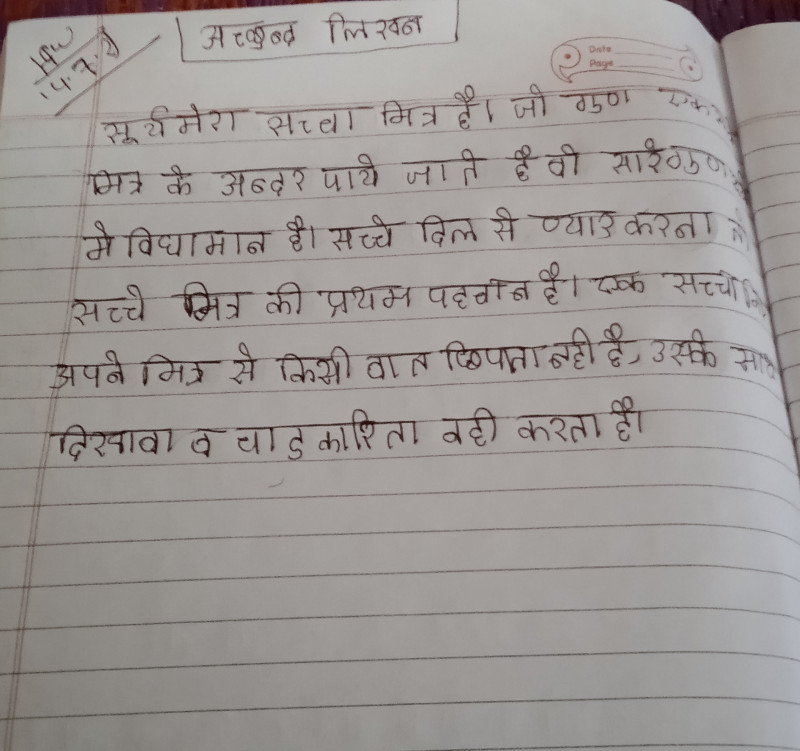 अच्छुन्द लिखन
Date
Page
सूर्य मेरा सच्चा मित्र है। जो गुण एक
मित्र के अन्दर पाये जाते है वो सारे गुण
मे विद्यामान है। सच्चे दिल से प्यार करना
सच्चे मित्र की प्रथम पहचान है। एक सच्चा
अपने मित्र से किसी बात छिपाता नही है, उसके साथ
दिखावा व चाटुकारिता नही करता है।